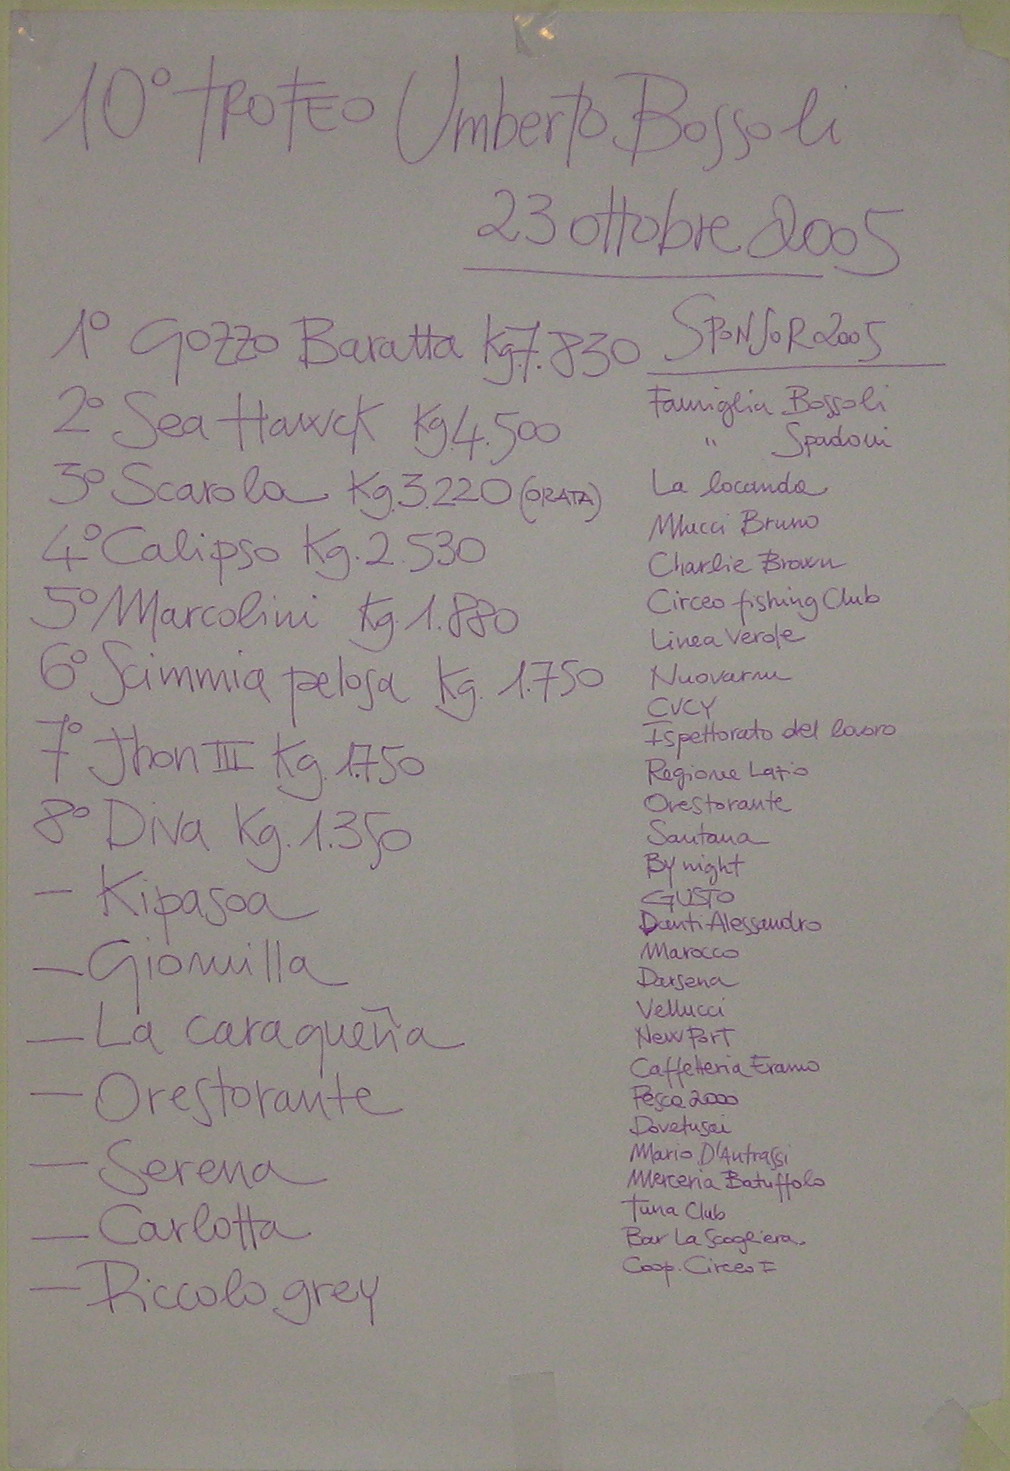 10° TROFEO Umberto Bossoli
23 ottobre 2005
1° Gozzo Baratta Kg.7.830
2° Sea Hawck Kg.4.500
3° Scarola Kg.3.220 (ORATA)
4° Calipso Kg.2.530
5° Marcolini Kg.1.880
6° Scimmia pelosa Kg. 1.750
7° Jhon III Kg. 1.750
8° Diva Kg. 1.350
- Kipasoa
- Giomilla
- La caraqueña
- Orestorante
- Serena
- Carlotta
- Piccolo grey
SPONSOR 2005
Famiglia Bossoli
" Spadoni
La locanda
Bruno
Charlie Brown
Circeo fishing Club
Linea Verde
CVCY
Ispettorato del lavoro
Regione Lazio
Orestorante
Santana
By night
GUSTO
Danti Alessandro
Marocco
Darsena
Vellucci
New Port
Caffetteria Eramo
Pesca 2000
Dovetusai
Mario D'Autrassi
Merceria Batuffolo
Tuna Club
Bar La Scogliera.
Coop. Circeo I